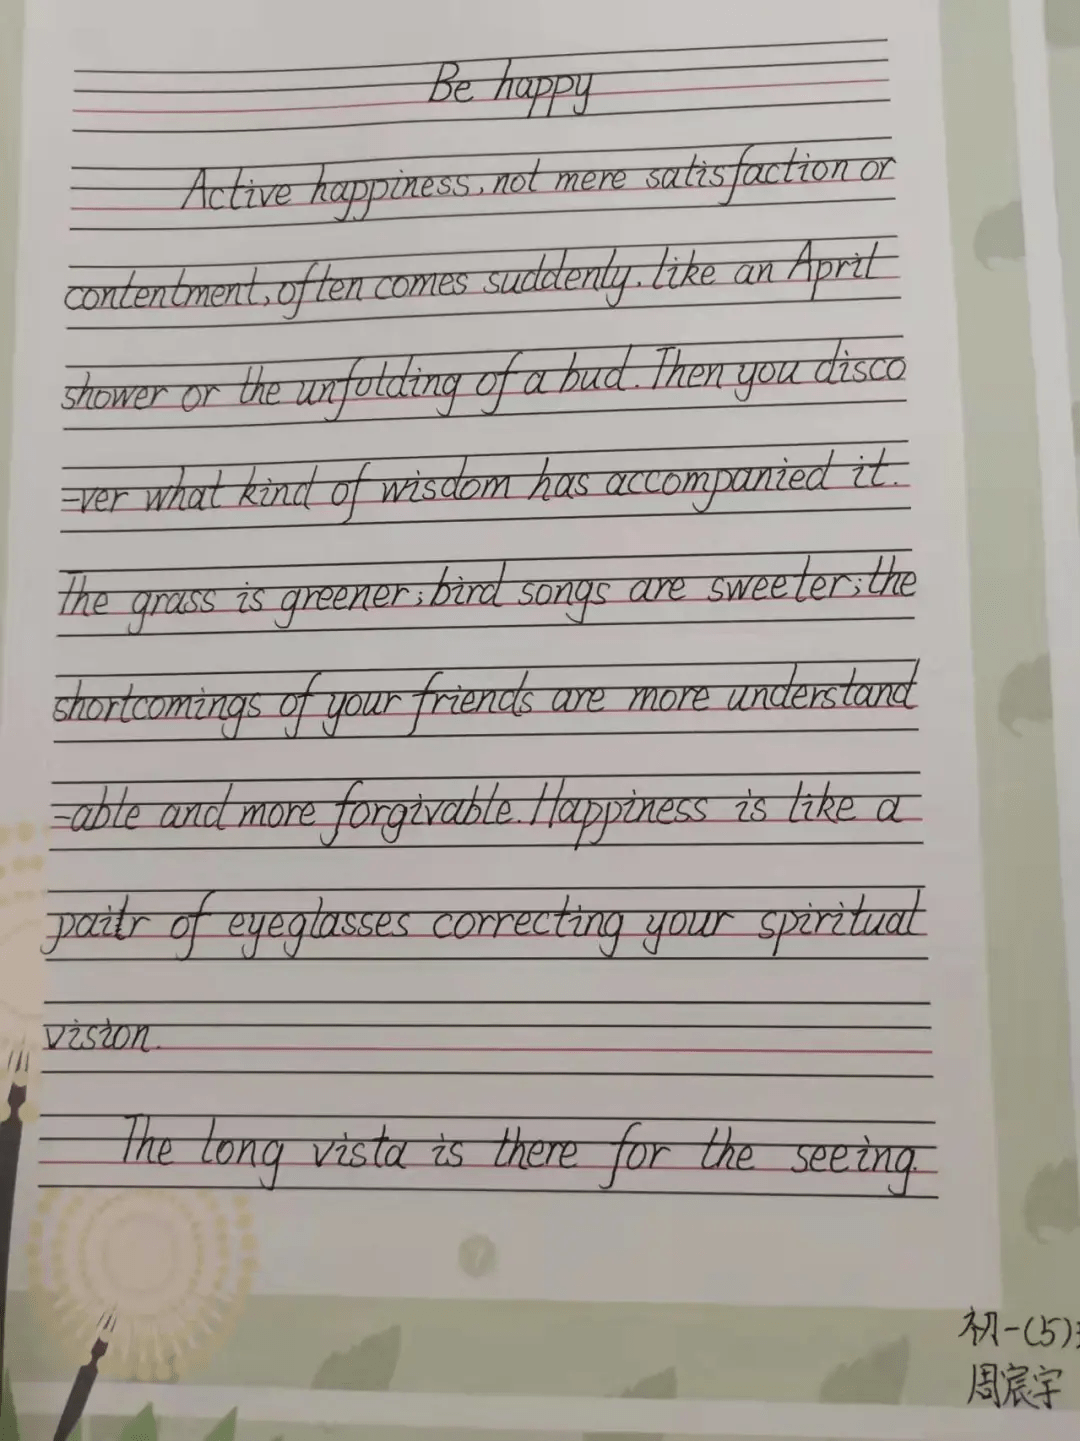 Be happy
Active happiness, not mere satisfaction or
contentment, often comes suddenly. like an April
shower or the unfolding of a bud. Then you disco
-ver what kind of wisdom has accompanied it.
The grass is greener; bird songs are sweeter; the
shortcomings of your friends are more understand
-able and more forgivable. Happiness is like a
pailr of eyeglasses correcting your spiritual
vision.
The long vista is there for the seeing.
初一(5)
周宸宇